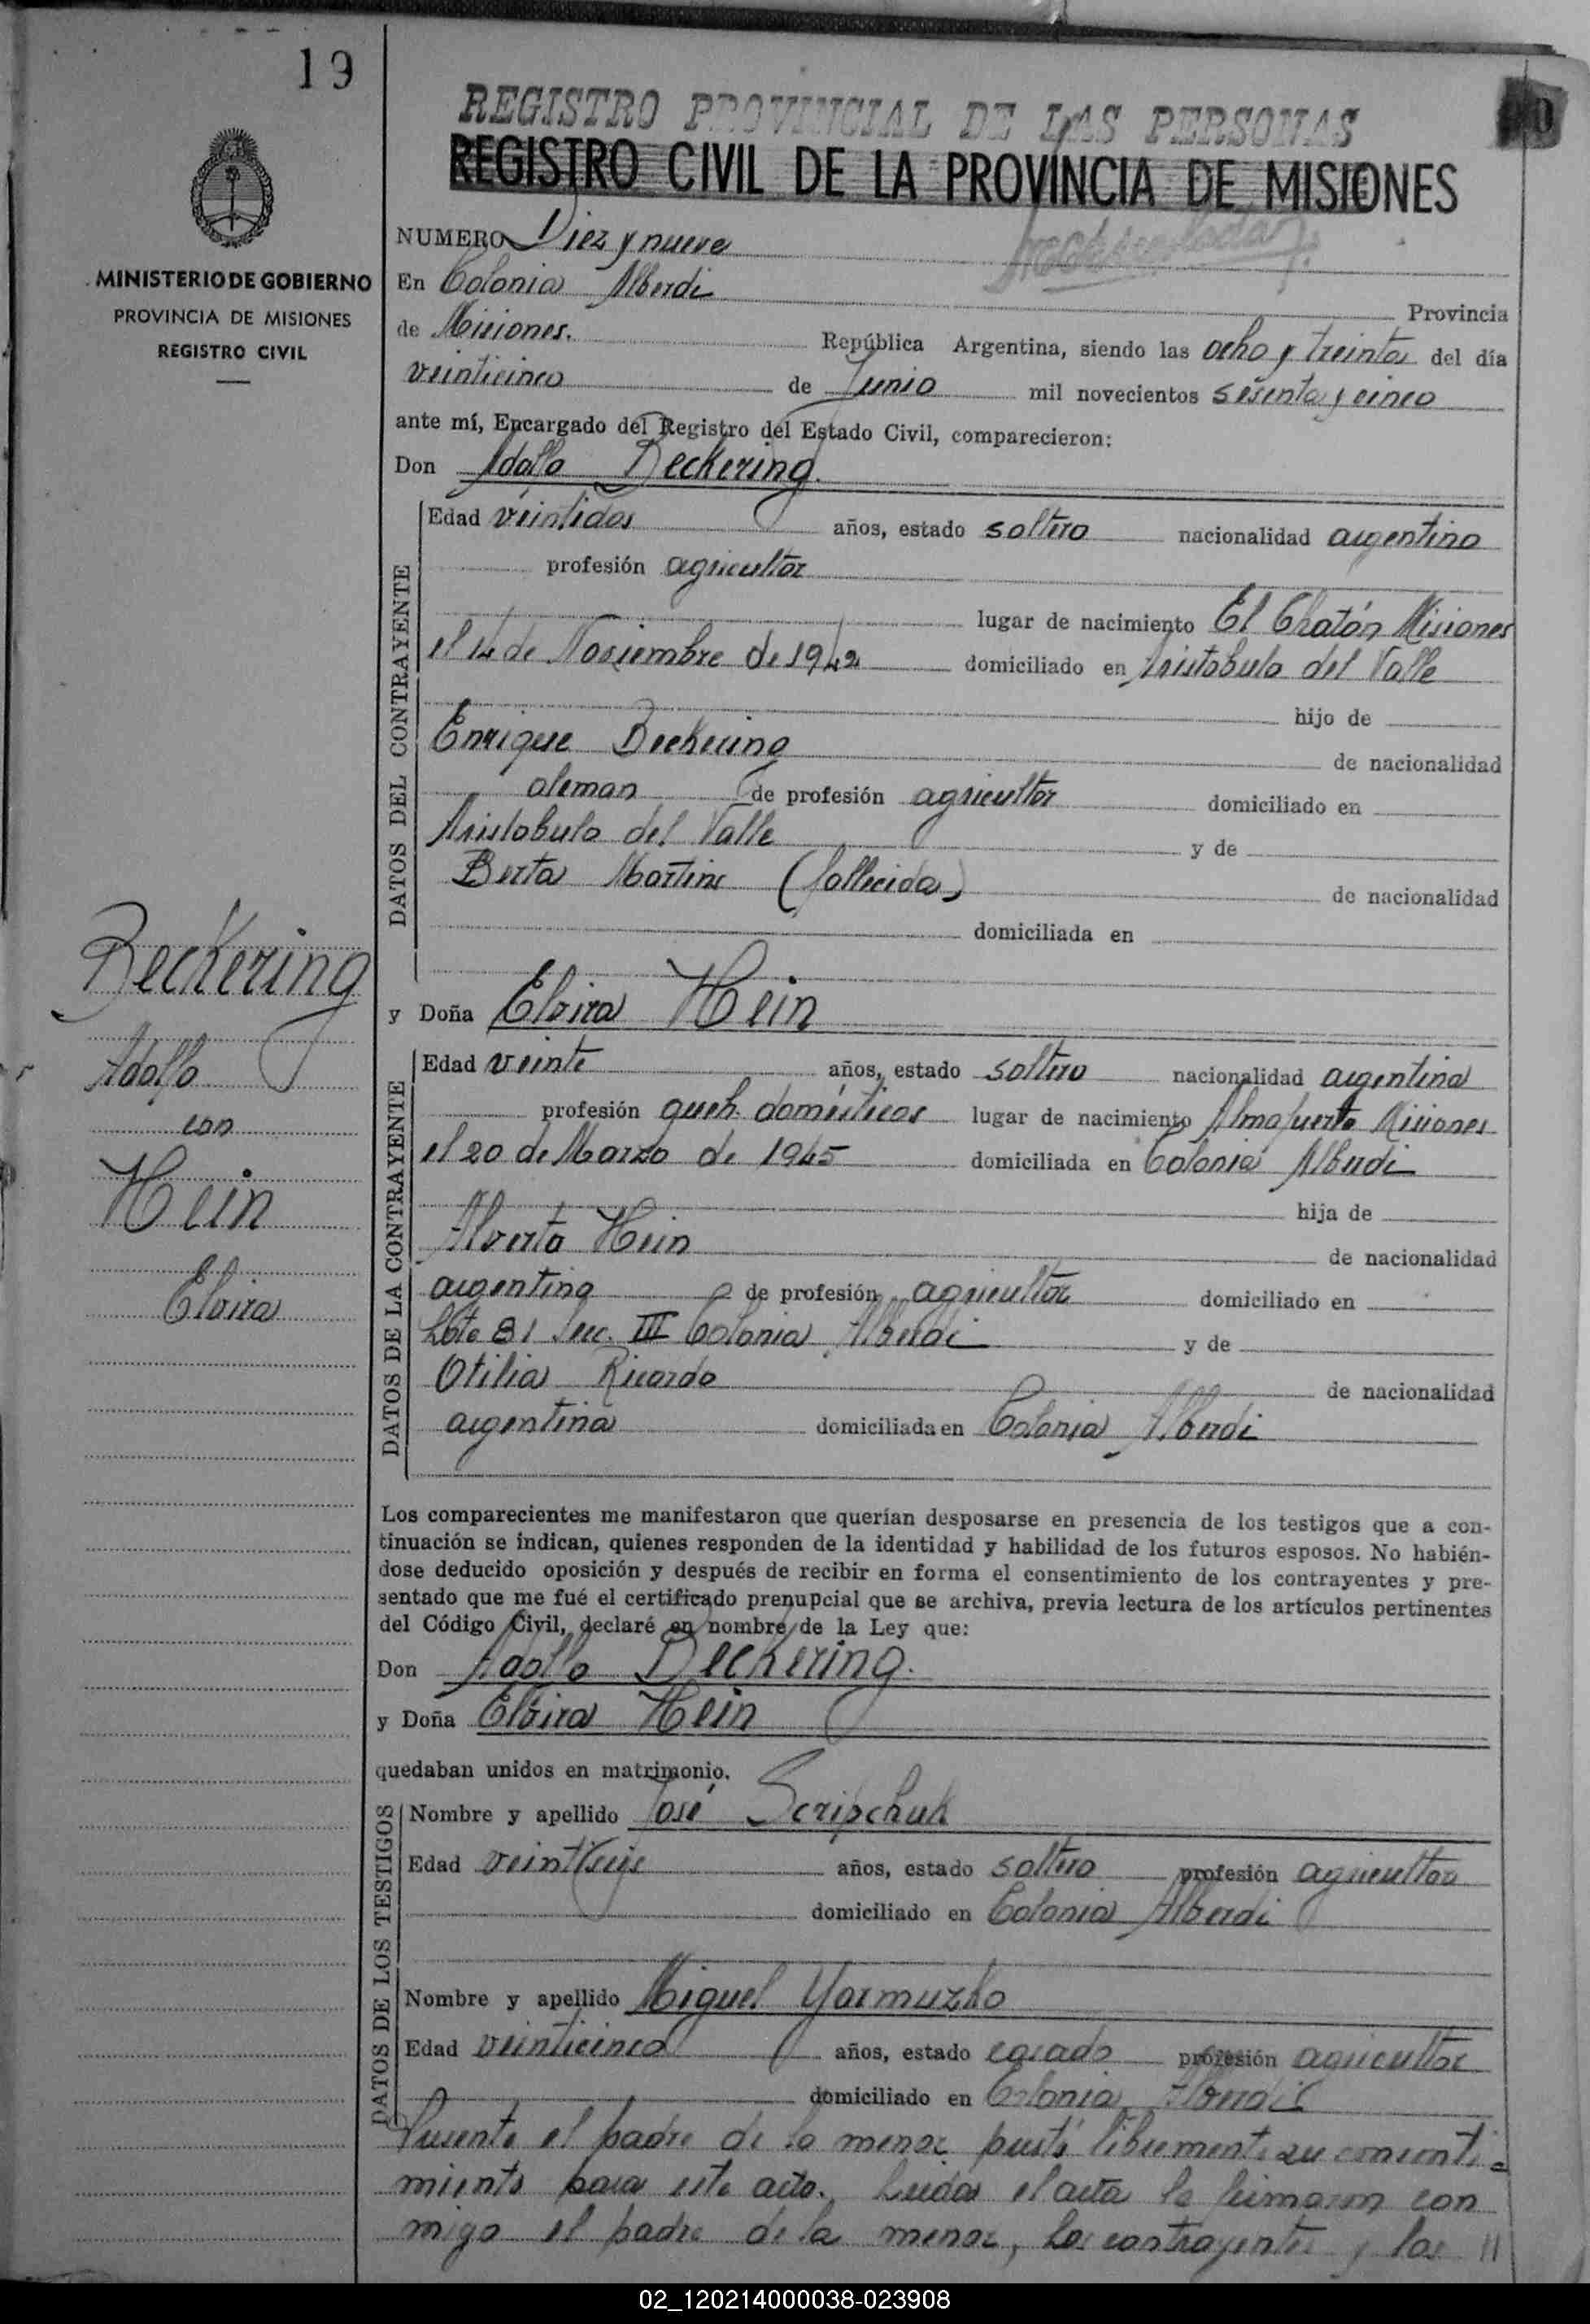 19
REGISTRO PROVINCIAL DE LAS PERSONAS
REGISTRO CIVIL DE LA PROVINCIA DE MISIONES
MINISTERIO DE GOBIERNO
PROVINCIA DE MISIONES
REGISTRO CIVIL
NUMERO Diez y nueve
En Colonia Alberdi Provincia
de Misiones. República Argentina, siendo las ocho y treinta del día
veinticinco de Junio mil novecientos sesenta y cinco
ante mí, Encargado del Registro del Estado Civil, comparecieron:
Don Adolfo Beckering.
DATOS DEL CONTRAYENTE
Edad veintidos años, estado soltero nacionalidad argentino
profesión agricultor
lugar de nacimiento El Chatón Misiones
el 14 de Noviembre de 1942 domiciliado en Aristobulo del Valle
hijo de
Enrique Beckering de nacionalidad
aleman de profesión agricultor domiciliado en
Aristobulo del Valle y de
Berta Martins (fallecida) de nacionalidad
domiciliada en
y Doña Elvira Hein
DATOS DE LA CONTRAYENTE
Edad veinte años, estado soltero nacionalidad argentina
profesión queh. domésticos lugar de nacimiento Almafuerte Misiones
el 20 de Marzo de 1945 domiciliada en Colonia Alberdi
hija de
Alverto Hein de nacionalidad
argentino de profesión agricultor domiciliado en
Lote 81 Sec. III Colonia Alberdi y de
Otilia Ricardo de nacionalidad
argentina domiciliada en Colonia Alberdi
Beckering
Adolfo
con
Hein
Elvira
Los comparecientes me manifestaron que querían desposarse en presencia de los testigos que a con-
tinuación se indican, quienes responden de la identidad y habilidad de los futuros esposos. No habién-
dose deducido oposición y después de recibir en forma el consentimiento de los contrayentes y pre-
sentado que me fué el certificado prenupcial que se archiva, previa lectura de los artículos pertinentes
del Código Civil, declaré en nombre de la Ley que:
Don Adolfo Beckering.
y Doña Elvira Hein
quedaban unidos en matrimonio.
DATOS DE LOS TESTIGOS
Nombre y apellido José Scripchuk
Edad veintiseis años, estado soltero profesión agricultor
domiciliado en Colonia Alberdi
Nombre y apellido Miguel Yarmuzko
Edad veinticinco años, estado casado profesión agricultor
domiciliado en Colonia Alberdi
Presente el padre de la menor prestó libremente su consenti-
miento para este acto. Leida el acta la firmaron con
migo el padre de la menor, los contrayentes y los //
02_120214000038-023908